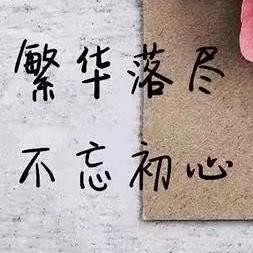 繁华落尽
不忘初心